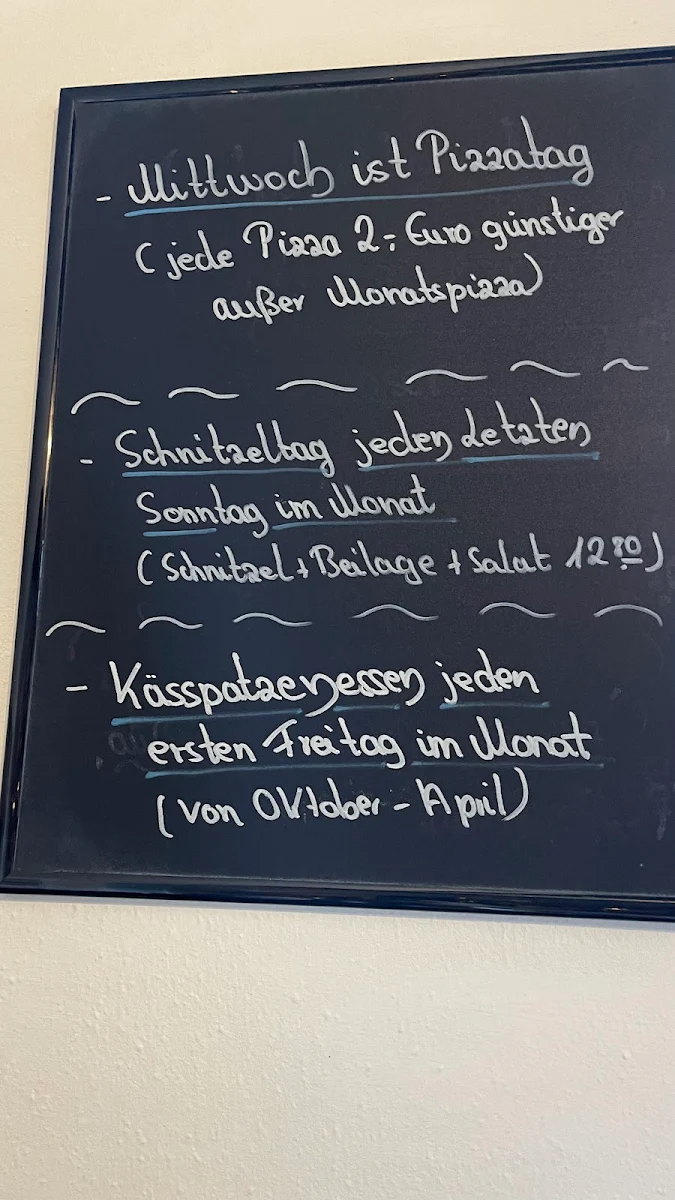 - Mittwoch ist Pizzatag
(jede Pizza 2,- Euro günstiger
außer Monatspizza)
- Schnitzeltag jeden letzten
Sonntag im Monat
(Schnitzel + Beilage + Salat 12 80)
- Kässpatzenessen jeden
ersten Freitag im Monat
(von Oktober - April)